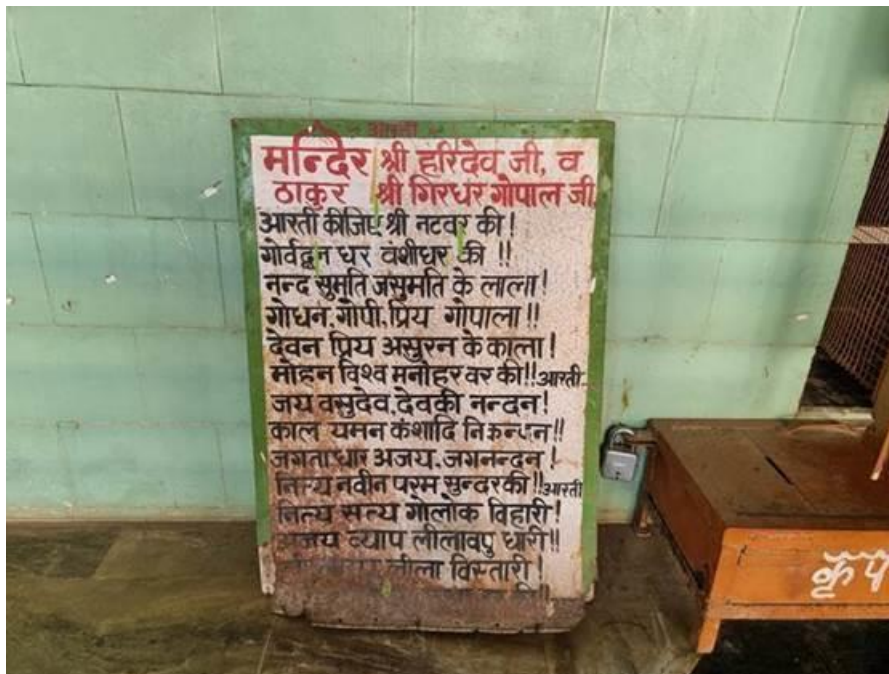 आरती
मन्दिर श्री हरिदेव जी, व
ठाकुर श्री गिरधर गोपाल जी,
आरती कीजिए श्री नटवर की!
गोर्वद्धन धर वंशीधर की !!
नन्द सुमति जसुमति के लाला!
गोधन, गोपी, प्रिय गोपाला!!
देवन प्रिय असुरन के काला!
मोहन विश्व मनोहर वर की!! आरती..
जय वसुदेव, देवकी नन्दन!
काल यमन कंशादि निकन्दन!!
जगताधार अजय, जगनन्दन!
नित्य नवीन परम सुन्दर की!! आरती
नित्य सत्य गोलोक विहारी!
अजय व्याप लीलावपु धारी!!
लीला विस्तारी!
कृप